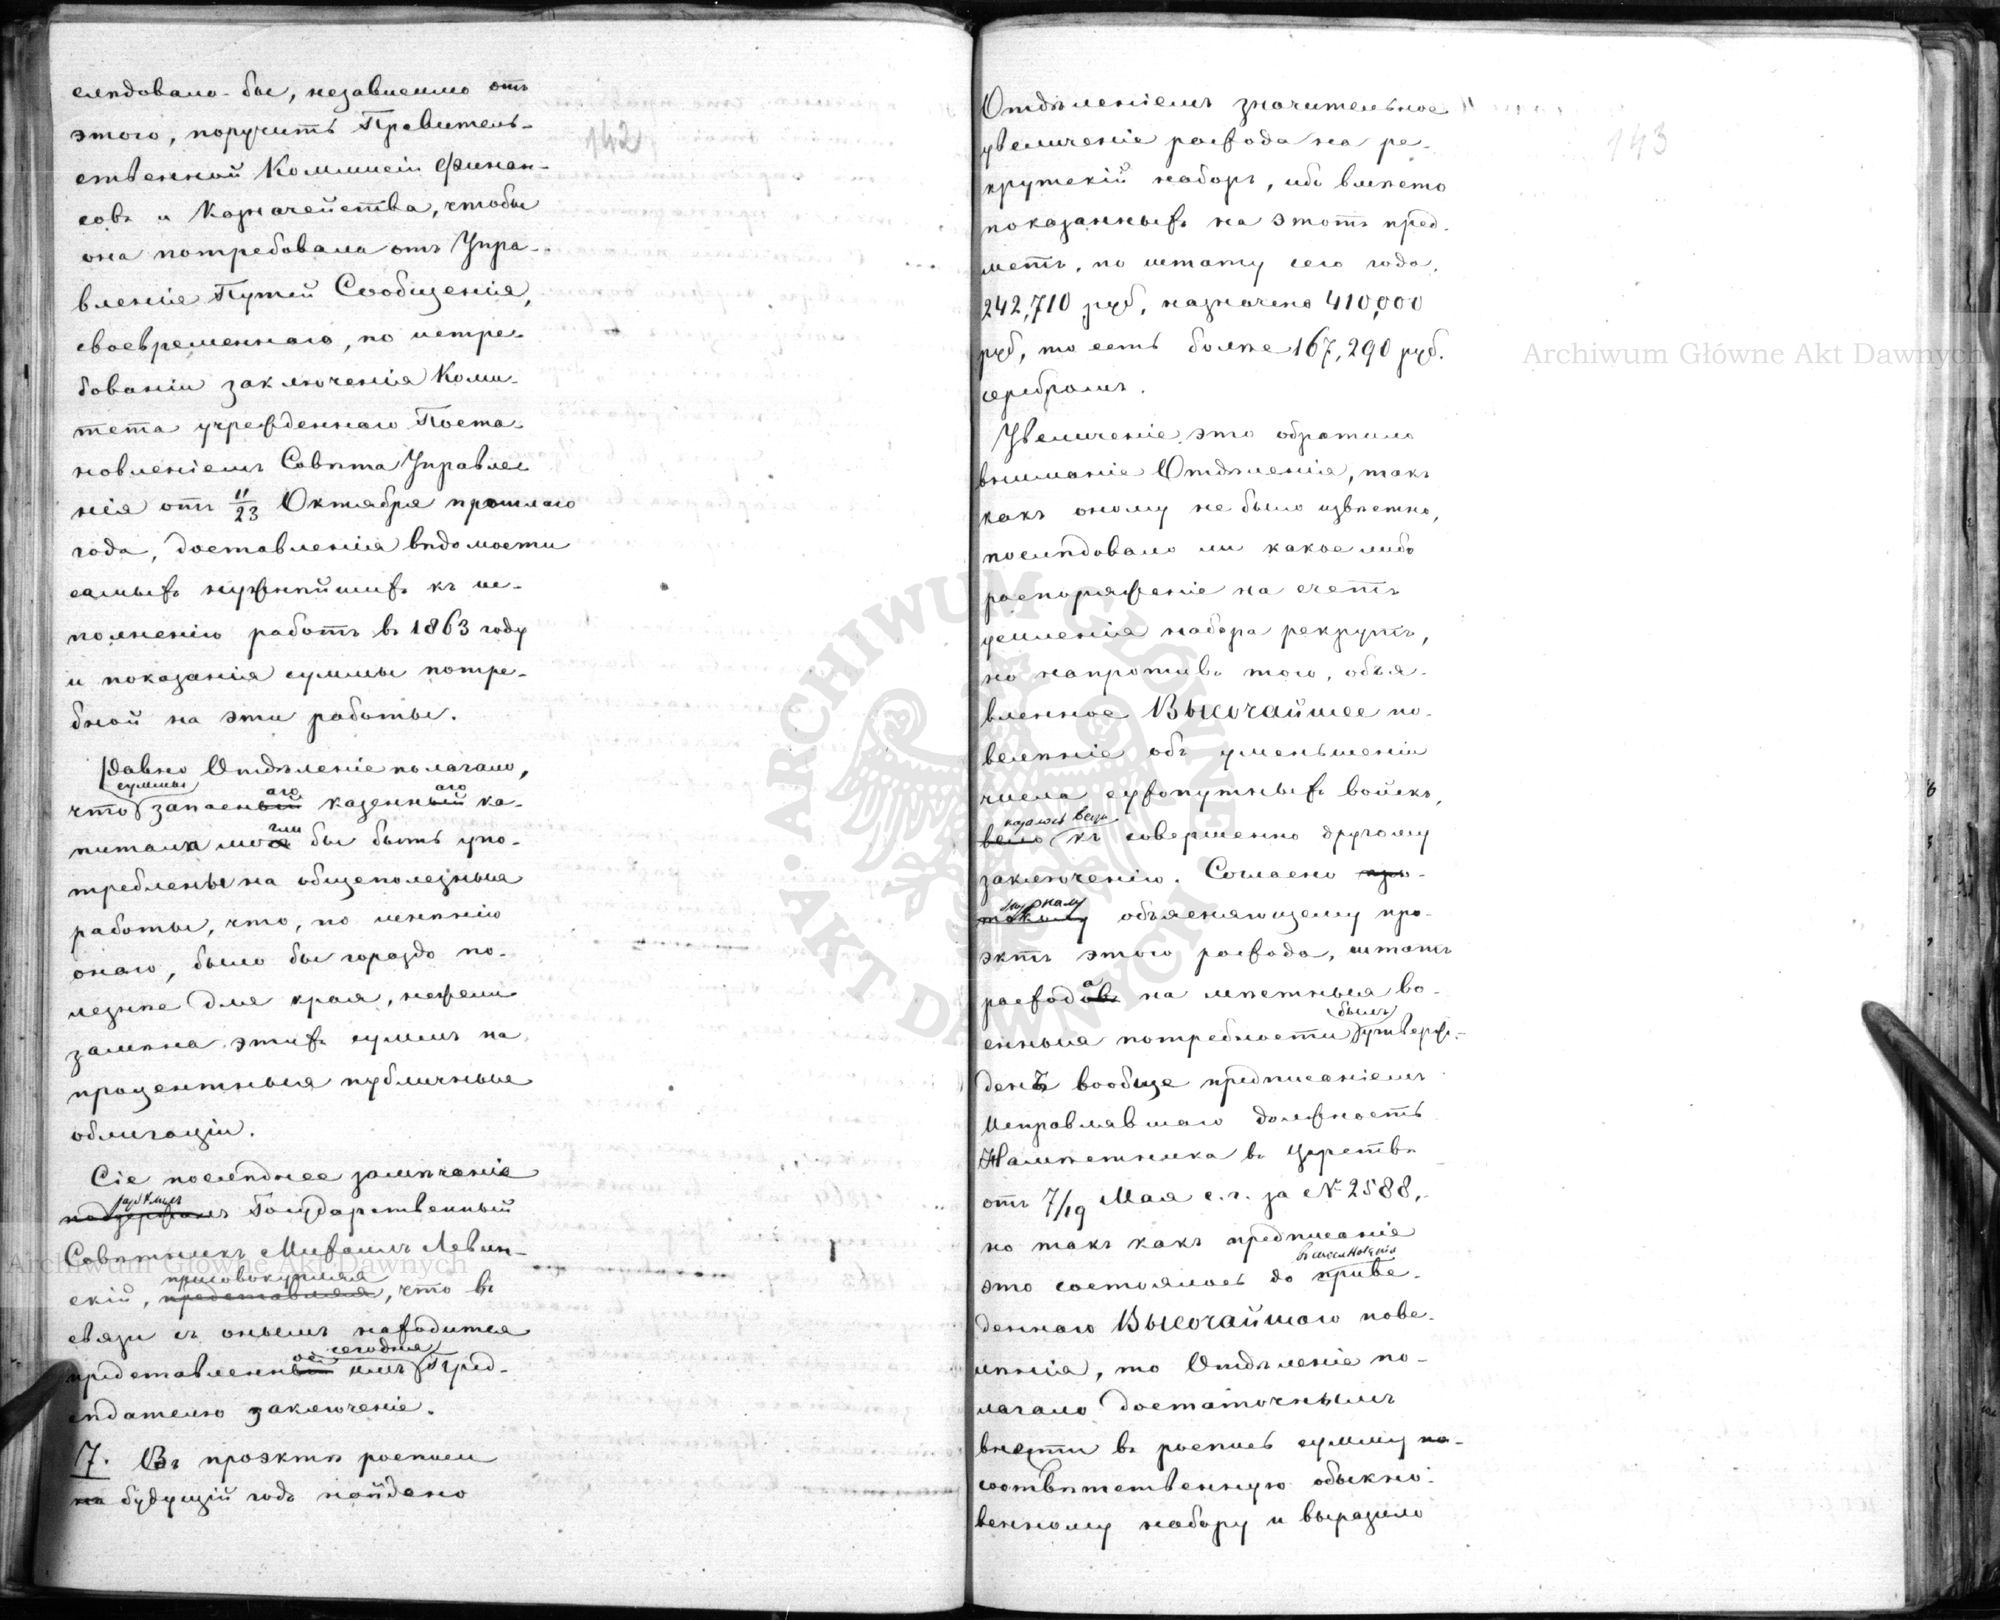 142
слѣдовало-бы, независимо отъ
этого, поручить Правитель-
ственной Коммисіи Финан-
совъ и Казначейства, чтобы
она потребовала отъ Упра-
вленія Путей Сообщенія,
своевременнаго, по истре-
бованіи заключенія Коми-
тета учрежденнаго Поста-
новленіемъ Совѣта Управле-
нія отъ 11/23 Октября прошлаго
года, доставленія вѣдомости
самыхъ нужнѣйшихъ къ ис-
полненію работъ въ 1863 году
и показанія суммы потре-
бной на эти работы.
Давно Отдѣленіе полагало,
суммы аго аго
что запасный казенный ка-
гли
питала мог бы быть упо-
требленына общеполезныя
работы, что, по мнѣнію
онаго, было бы гораздо по-
лезнѣе для края, нежели
замѣна этихъ суммъ на
процентныя публичныя
облигаціи.
Сіе послѣднее замѣчаніе
поддержалъ Государственный
Совѣтникъ Михаилъ Левин-
присовокупляя
скій, представляя, что въ
связи съ онымъ находится
ое сегодня
представленный имъ Пред-
сѣдателю заключеніе.
7. Въ проэктѣ росписи
на будущій годъ найдено
143
Отдѣленіемъ значительное
увеличеніе расхода на ре-
крутскій наборъ, ибо вмѣсто
показанныхъ на этотъ пред-
метъ, по штату сего года,
242,710 руб, назначено 410,000
руб, то есть болѣе 167,290 руб.
серебромъ.
Увеличеніе это обратило
вниманіе Отдѣленія, такъ
какъ оному не было извѣстно,
послѣдовало ли какое либо
распоряженіе на счетъ
усиленія набора рекрутъ,
но напротивъ того, объя-
вленное Высочайшее по-
велѣніе объ уменьшеніи
числа сухопутныхъ войскъ,
казалось вело
вело къ совершенно другому
заключенію. Согласно про-
журналу
токолу объясняющему про-
эктъ этого расхода, штатъ
а
расходовъ на мѣстныя во-
былъ
енныя потребности утверж-
денъ вообще предписаніемъ
Исправлявшаго должность
Намѣстника въ Царствѣ
отъ 7/19 Мая с. г. за № 2588,
но такъ какъ предписаніе
это состоялось до приве-
деннаго Высочайшаго пове-
лѣнія, то Отдѣленіе по-
лагало достаточнымъ
внести въ роспись сумму по-
соотвѣтственную обыкно-
венному набору и выразило
Archiwum Główne Akt Dawnych
Archiwum Główne Akt Dawnych
ARCHIWUM GŁÓWNE
AKT DAWNYCH